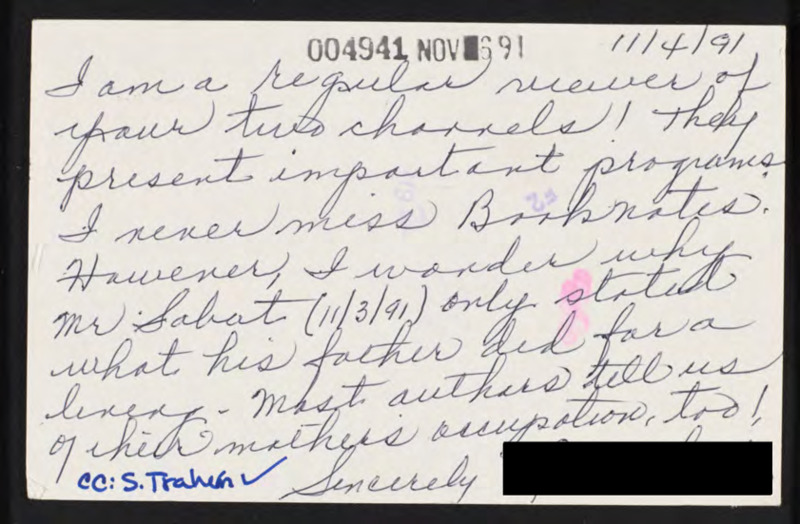 004941 NOV 6 91
11/4/91
I am a regular viewer of
your two channels! They
present important programs.
I never miss Booknotes.
However, I wonder why
Mr Sabat (11/3/91) only stated
what his father did for a
living - Most authors tell us
of their mother's occupation, too!
Sincerely
cc: S. Trahern ✓